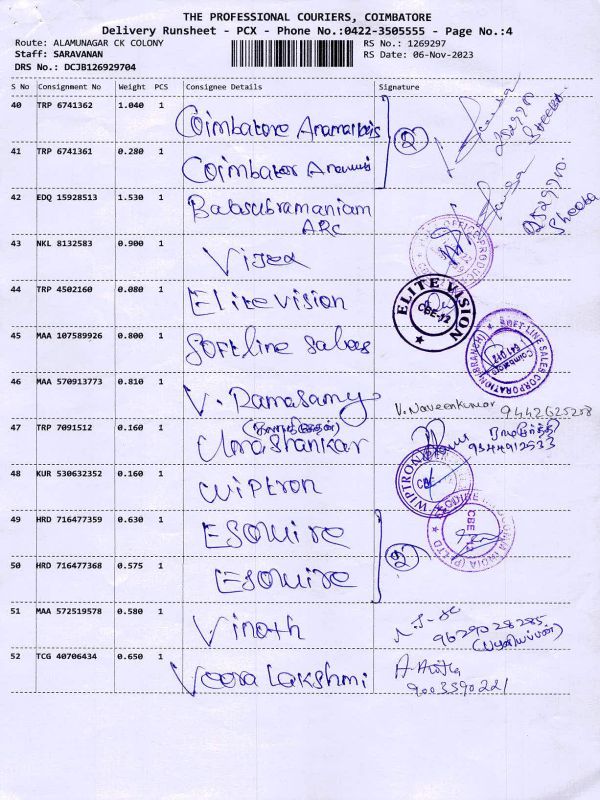 THE PROFESSIONAL COURIERS, COIMBATORE
Delivery Runsheet - PCX - Phone No.:0422-3505555 - Page No.:4
Route: ALAMUNAGAR CK COLONY RS No.: 1269297
Staff: SARAVANAN RS Date: 06-Nov-2023
DRS No.: DCJB126929704
S No Consignment No Weight PCS Consignee Details Signature
40 TRP 6741362 1.040 1 Coimbatore
41 TRP 6741361 0.280 1
2
Sheeba
42 EDQ 15928513 1.530 1 Balasubramaniam
ARC
Sheeba
43 NKL 8132583 0.900 1
44 TRP 4502160 0.080 1 Elite vision
ELITE VISION
CBE-12
45 MAA 107589926 0.800 1 Softline Sales
SOFT-LINE SALES CORPORATION (BRANCH)
Coimbatore
641 012
46 MAA 570913773 0.810 1 V. Ramasamy
V. Naveenkumar 9442625258
47 TRP 7091512 0.160 1 Umashankar
9344912533
48 KUR 530632352 0.160 1 wiptron
WIPTRON
CBE
49 HRD 716477359 0.630 1 ESQUIRE
50 HRD 716477368 0.575 1 ESQUIRE
2
INDIA (P) LTD
CBE
51 MAA 572519578 0.580 1 Vinoth
9629028285
52 TCG 40706434 0.650 1 Veera Lakshmi
9003590221